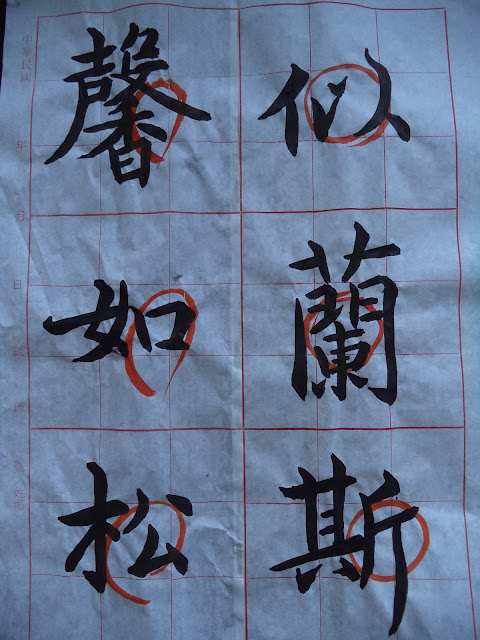 似蘭斯
馨如松
中華民國 年 月 日